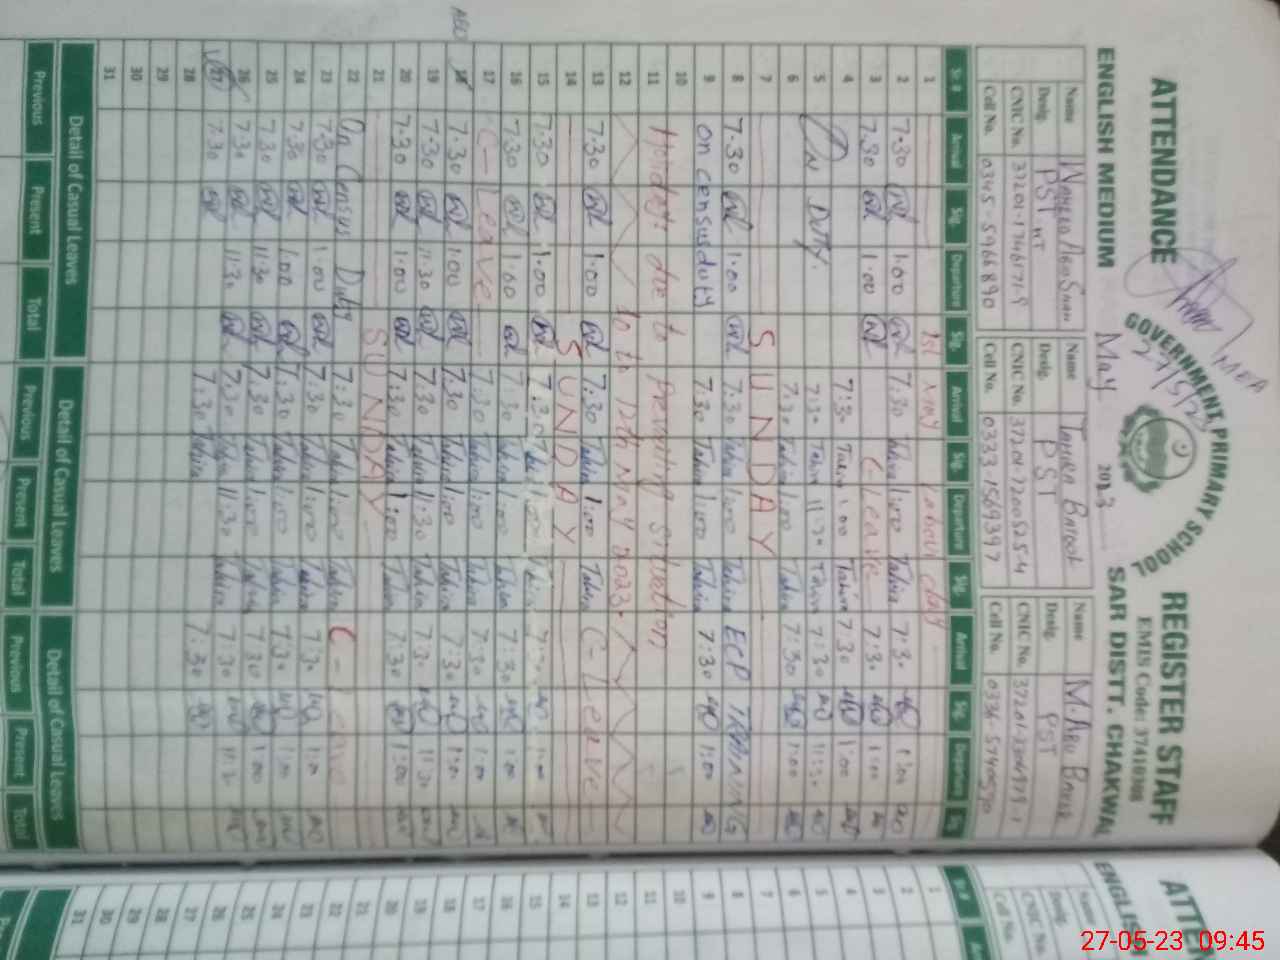 ATTENDANCE REGISTER STAFF
GOVERNMENT PRIMARY SCHOOL
EMIS Code: 37410308
ENGLISH MEDIUM May 2023 SAR DISTT. CHAKWAL
MEA
Name Waheed Abu Saan Name Tahira Batool Name M. Abu Baker
Desig. PST HT Desig. PST Desig. PST
CNIC No. CNIC No. 37201-7200525-4 CNIC No.
Cell No. 0345-5966890 Cell No. 0333 1569397 Cell No.
Sr.# Arrival Sig. Departure Sig. Arrival Sig. Departure Sig. Arrival Sig. Departure Sig.
1 1st May Labour day
2 7.30 1.00 7:30 Tahira 1:00 Tahira 7:30 1:00
3 7.30 1.00 C-Leave 7:30 1:00
4 On Duty. 7:30 Tahira 1:00 Tahira 7:30 1:00
5 7:30 Tahira 11:30 Tahira 7:30 11:30
6 7:30 Tahira 1:00 Tahira 7:30 1:00
7 SUNDAY
8 7.30 1.00 7:30 Tahira 1:00 Tahira ECP TRAINING
9 on census duty 7:30 Tahira 1:00 Tahira 7:30 1:00
10
11 Holiday due to Prevailing situation
12 10 to 12th May 2023.
13 7.30 1.00 7:30 Tahira 1:00 Tahira C-Leave
14 SUNDAY
15 7.30 1.00 7:30 Tahira 1:00
16 7.30 1.00 7:30 Tahira 1:00 Tahira 7:30 1:00
17 C-Leave 7:30 Tahira 1:00 Tahira 7:30 1:00
18 7.30 1.00 7:30 Tahira 1:00 Tahira 7:30 1:00
19 7.30 11.30 7:30 Tahira 11:30 Tahira 7:30 11:30
20 7.30 1.00 7:30 Tahira 1:00 Tahira 7:30 1:00
21 SUNDAY
22 On Census Duty 7:30 Tahira 1:00 Tahira C-Leave
23 7.30 1.00 7:30 Tahira 1:00 Tahira 7:30 1:00
24 7.30 1.00 7:30 Tahira 1:00 Tahira 7:30 1:00
25 7.30 11.30 7:30 Tahira 1:00 Tahira 7:30 1:00
26 7.30 11.30 7:30 Tahira 11:30 Tahira 7:30
27 7.30 7:30 Tahira 7:30
28
29
30
31
Detail of Casual Leaves Detail of Casual Leaves Detail of Casual Leaves
Previous Present Total Previous Present Total Previous Present Total
AEO
ATTEN
ENGLISH
Name
Desig.
CNIC No.
Cell No.
Sr.#
1
2
3
4
5
6
7
8
9
10
11
12
13
14
15
16
17
18
19
20
21
22
23
24
25
26
27
28
29
30
31
27-05-23 09:45